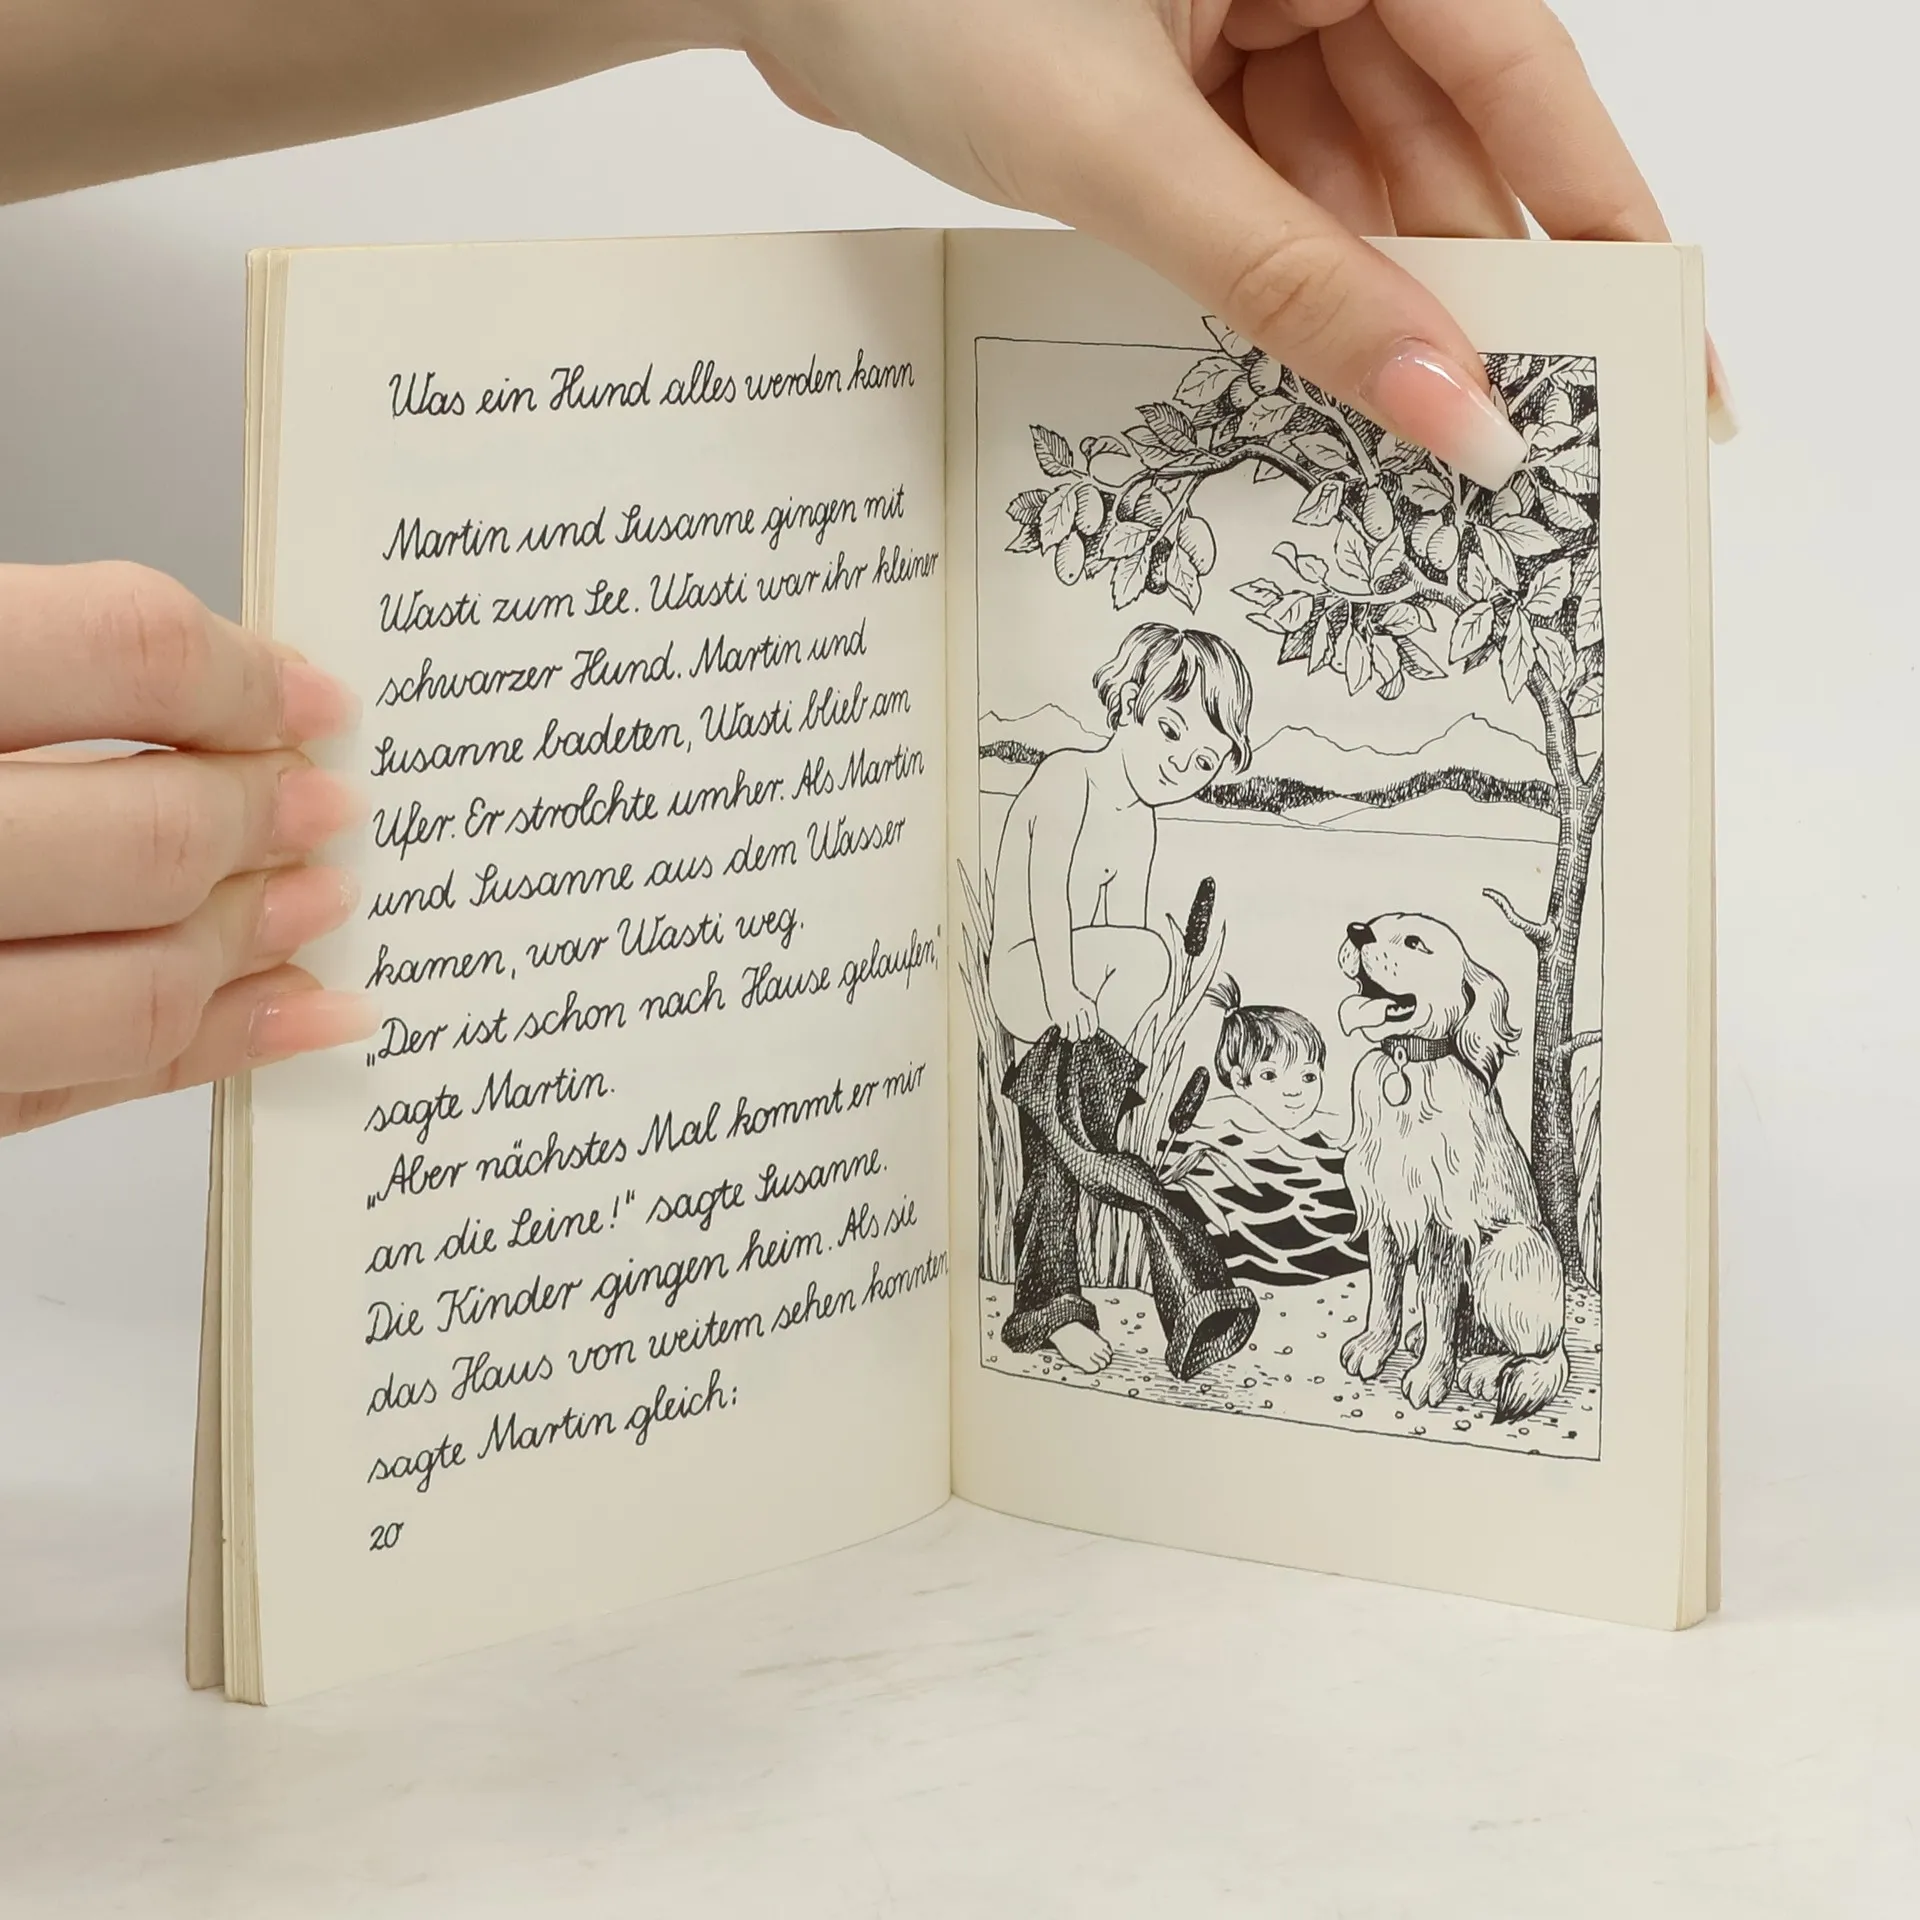 Was ein Hund alles werden kann
Martin und Susanne gingen mit
Wasti zum See. Wasti war ihr kleiner
schwarzer Hund. Martin und
Susanne badeten, Wasti blieb am
Ufer. Er strolchte umher. Als Martin
und Susanne aus dem Wasser
kamen, war Wasti weg.
„Der ist schon nach Hause gelaufen,“
sagte Martin.
„Aber nächstes Mal kommt er mir
an die Leine!“ sagte Susanne.
Die Kinder gingen heim. Als sie
das Haus von weitem sehen konnten
sagte Martin gleich:
20